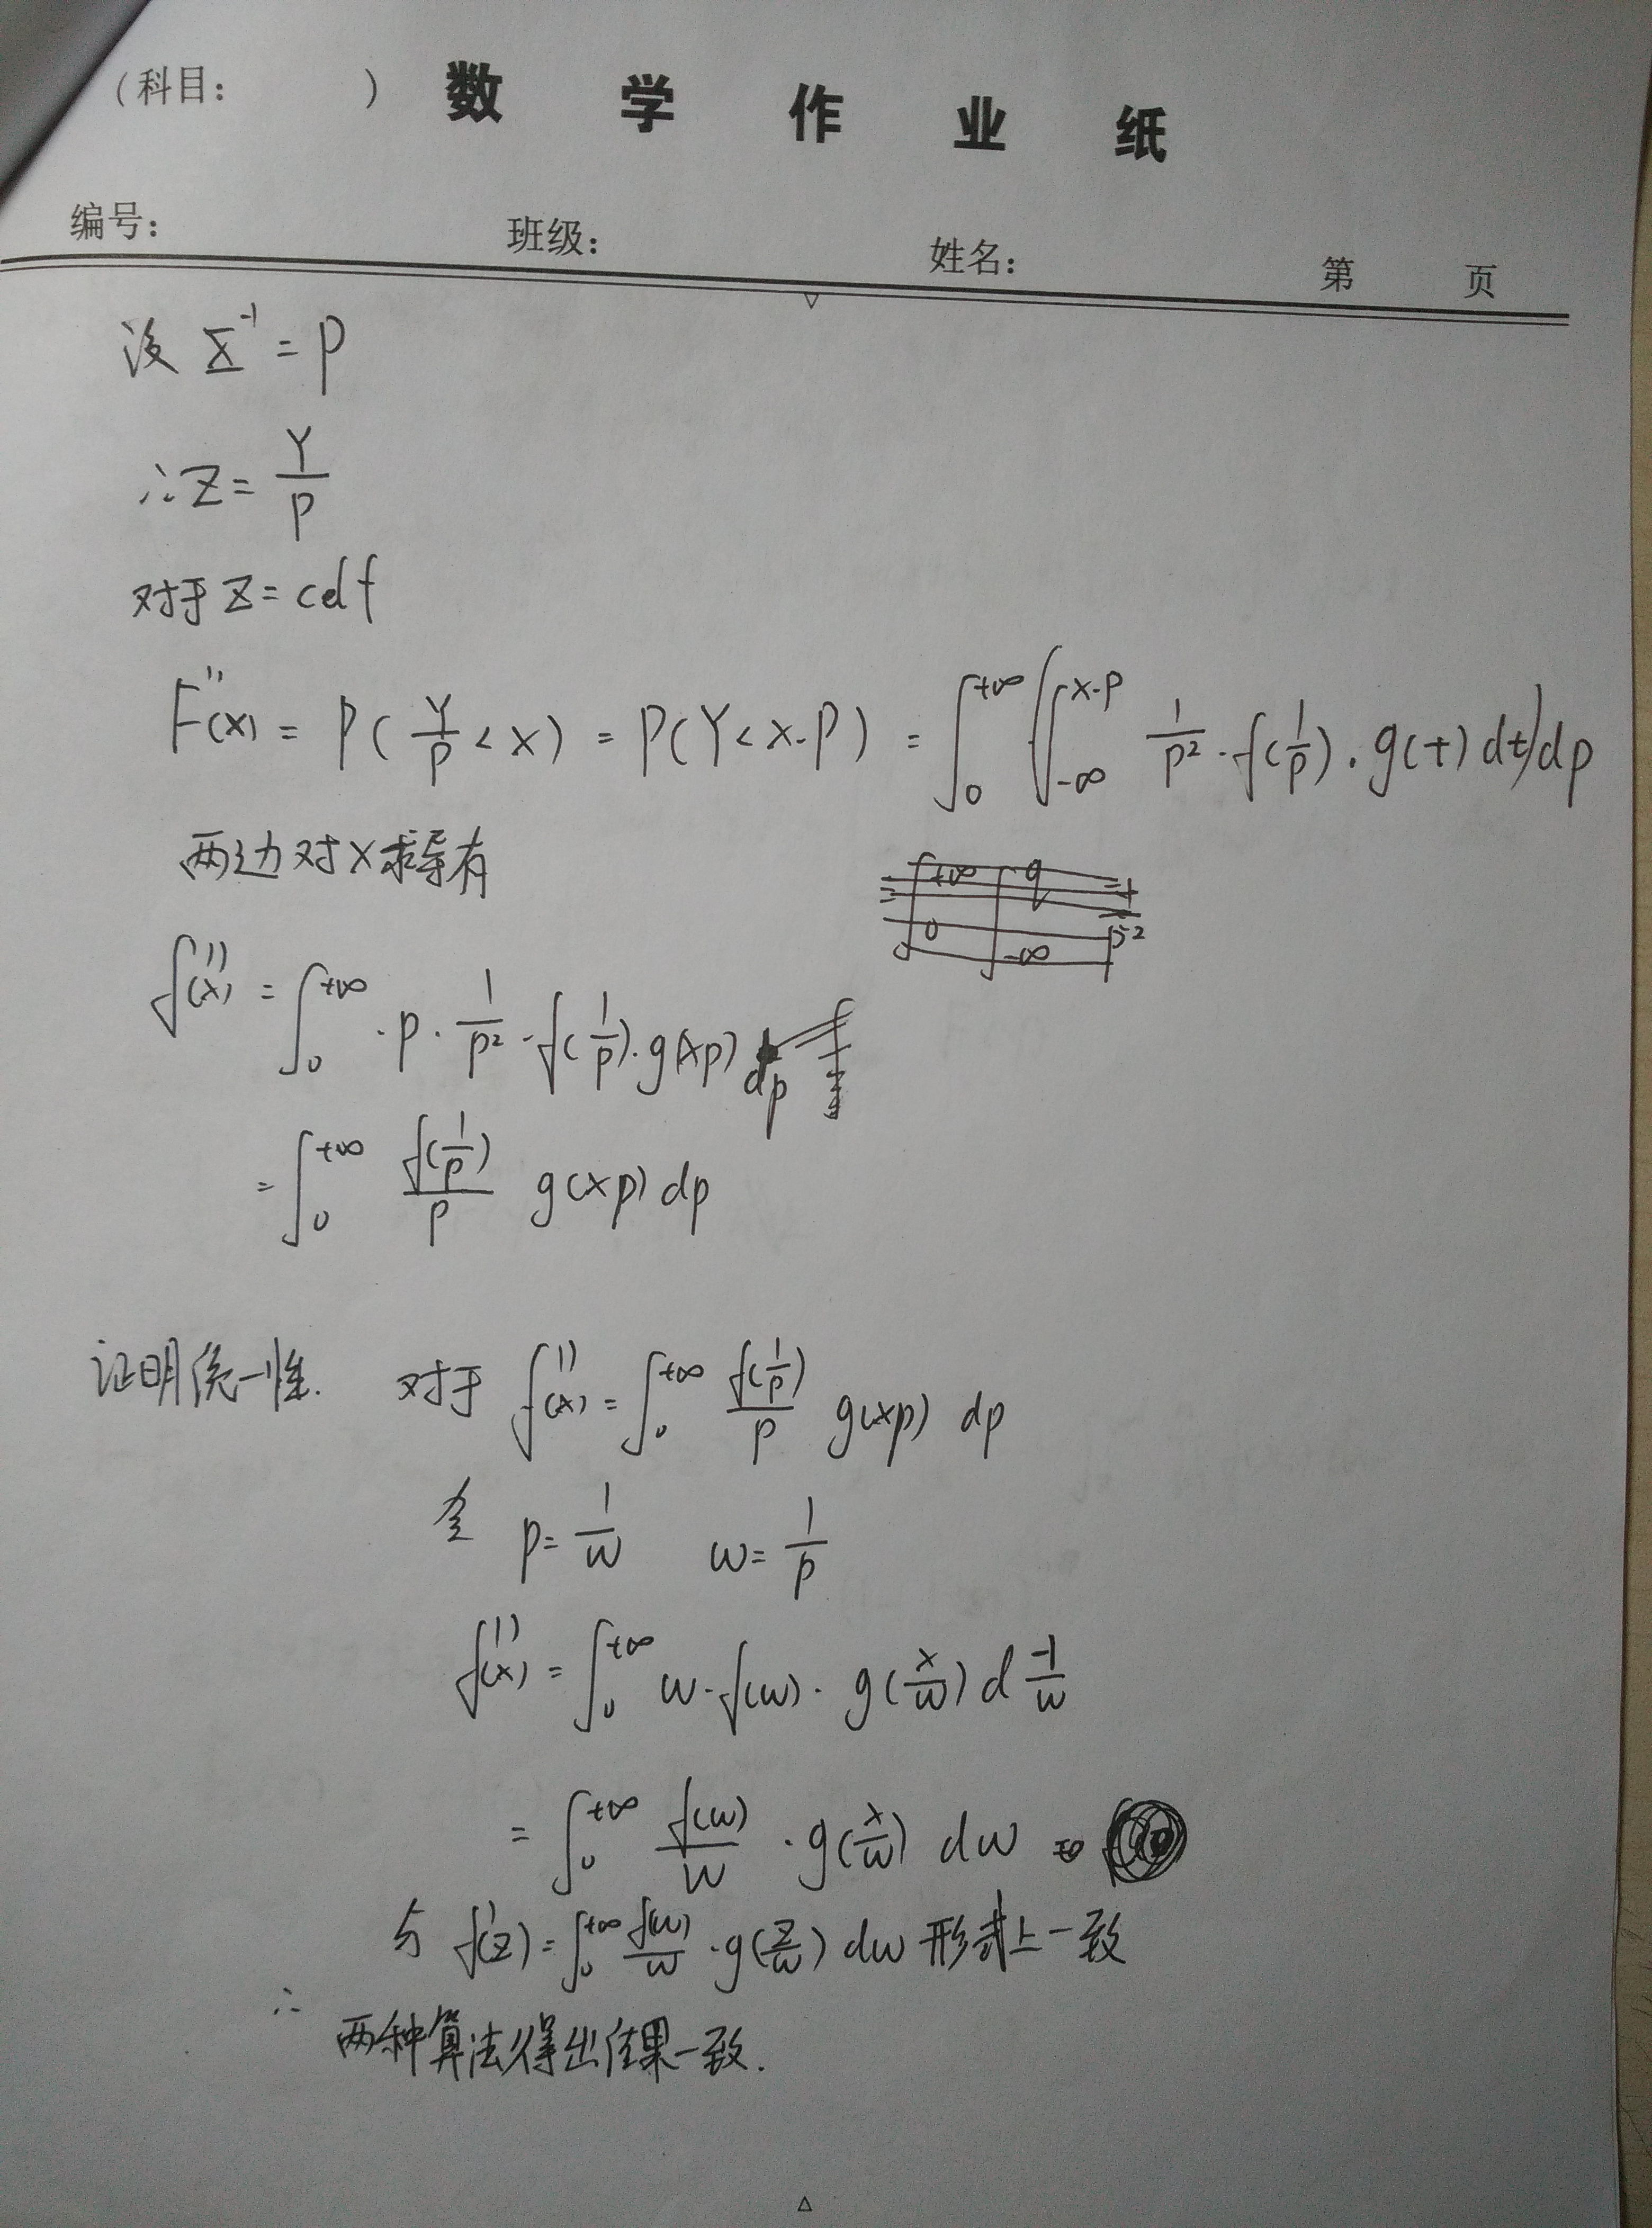 （科目： ） 数 学 作 业 纸
编号： 班级： 姓名： 第 页
设 X⁻¹ = P
∴ Z = Y/P
对于 Z = cdf
F''(x) = P(Y/P < x) = P(Y < x·P) = ∫₀^{+∞} (∫_{-∞}^{x·p} 1/p² · f(1/p) · g(t) dt) dp
两边对 x 求导有
f''(x) = ∫₀^{+∞} · p · 1/p² · f(1/p) · g(xp) dp
= ∫₀^{+∞} f(1/p)/p g(xp) dp
证明统一性. 对于 f''(x) = ∫₀^{+∞} f(1/p)/p g(xp) dp
令 p = 1/w w = 1/p
f''(x) = ∫₀^{+∞} w · f(w) · g(x/w) d -1/w
= ∫₀^{+∞} f(w)/w · g(x/w) dw
与 f'(z) = ∫₀^{+∞} f(w)/w · g(z/w) dw 形式上一致
∴ 两种算法得出结果一致.